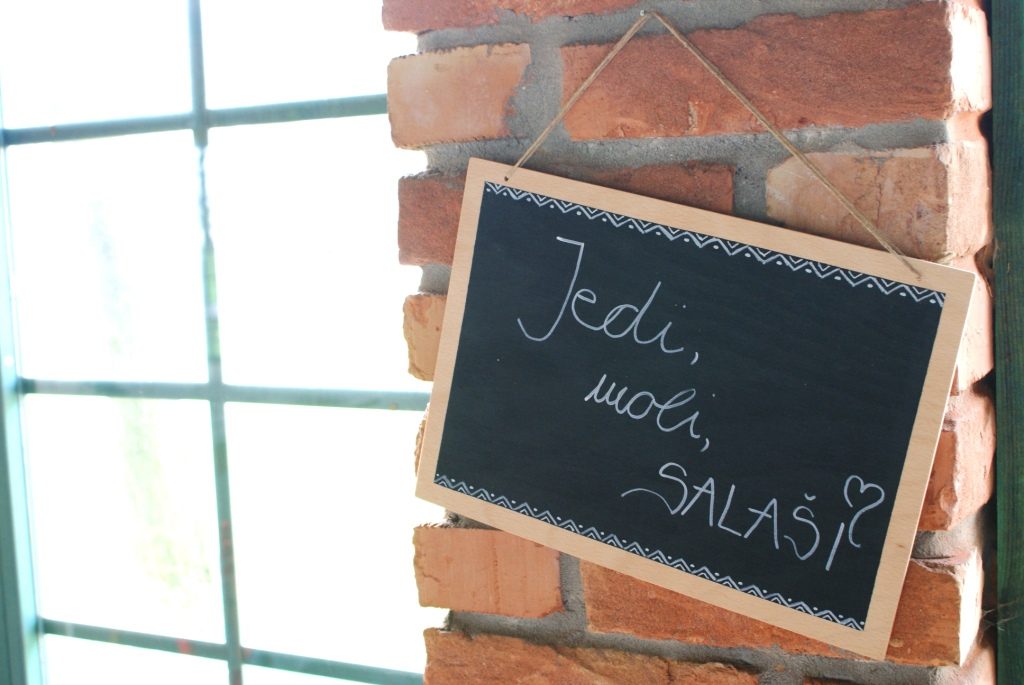 Jedi,
moli,
SALAŠI